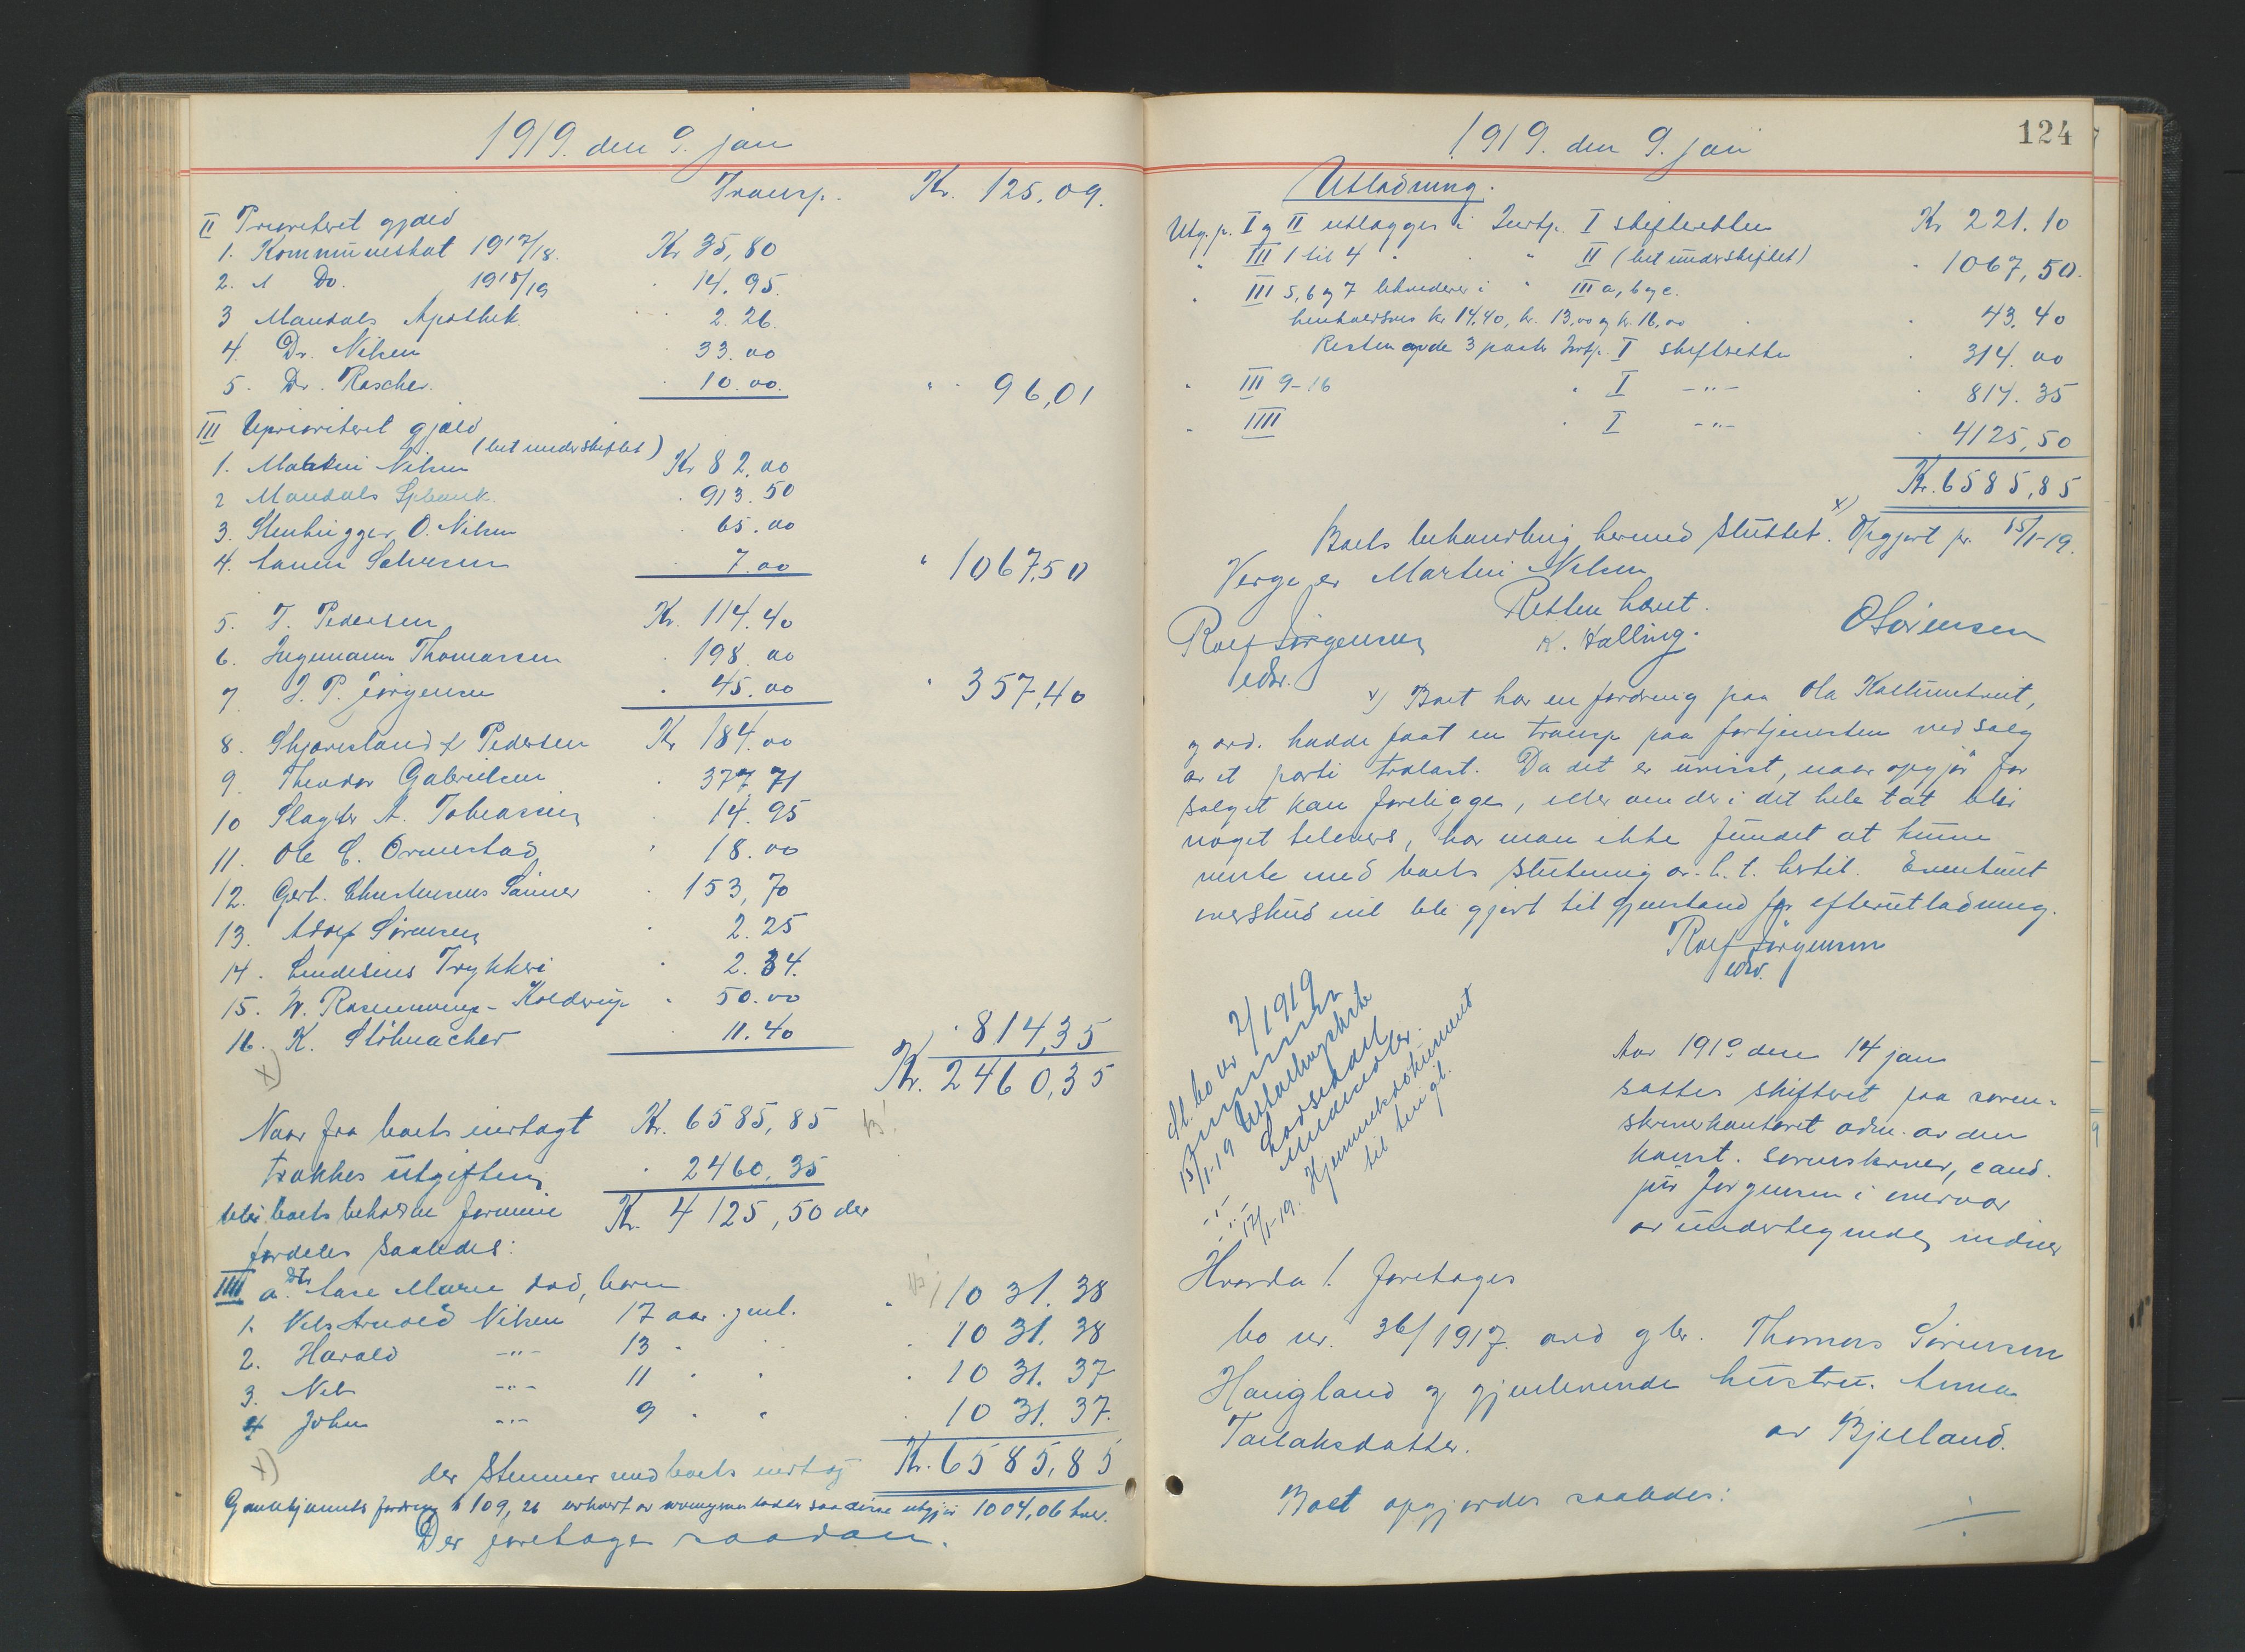 1919. den 9. jan
Transp. Kr. 125,09.
II Prioriteret gjæld
1. Kommuneskat 1917/18. Kr 35,80
2. Do. 1918/19 14.95.
3 Mandals Apothek 2.26.
4. Dr. Nilsen 33.00
5. Dr. Roscher. 10.00. " 96,01
III Uprioriteret gjæld
(bet under skiftet)
1. Martin Nilsen Kr 82.00
2 Mandals Spbank. 913.50
3. Stenhugger O. Nilsen 65.00
4. Salvesen 7.00 " 1067,50
5. T. Pedersen Kr. 114.40
6. Ingemann Thomassen 198.00
7 J. P. Jørgensen 45.00 " 357,40
8. Skjævesland & Pedersen Kr 184.00
9. Theodor Gabrielsen 377,71
10 Slagter A. Tobiassen 14.95
11. Ole C. Ormestad 18.00
12. Gert. Christensens Sønner 153,70
13. Adolf Sørensen 2.25
14. Lindesnes Trykkeri 2.34.
15. W. Rosenvinge-Kolderup 50.00
16. K. Stöhmacher 11.40 814,35
x) Kr. 2460,35
Naar fra boets indtægt Kr. 6585,85
trækkes utgiften 2460.35
blir boets beholdne formue Kr. 4125,50 der
fordeles saaledes:
IIII a. Dtr Aase Marie død, børn
1. Nils Arnold Nilsen 17 aar gml. " 1031.38
2. Harald -"- 13 " 1031.38
3. Nils -"- 11 " " 1031.37
4 John -"- 9 " " 1031.37.
x) der stemmer med boets indtægt Kr. 6585,85
109,26 1004,06 hver.
Der foretages saadan.
124
1919. den 9. jan
Utlodning.
Utg.p. I og II utlægges i Indtp. I skifteretten Kr 221.10
" III 1 til 4 " " II (bet under skiftet) " 1067,50.
" III 5, 6 og 7 likvideres i " III a, b og c.
henholdsvis kr 14.40, kr. 13,00 og kr. 16,00 43.40
Resten av de 3 poster Indtp. I skifteretten 314.00
" III 9-16 " I -"- 814.35
" IIII " I -"- 4125,50
Kr. 6585,85
Boets behandling hermed sluttet. x) Opgjort pr. 15/1-19.
Verge er Martin Nilsen
Retten hævet.
Rolf Jørgensen K. Halling. O Sørensen
edsv.
x) Boet har en fordring paa Ola
og avd. hadde faat en transp paa fortjenesten ved salg
av et parti trælast. Da det er uvisst, naar opgjør for
salget kan foreligge, eller om der i det hele tat blir
noget tilovers, har man ikke fundet at kunne
vente med boets slutning av h. t. hertil. Eventuelt
overskud vil bli gjort til gjenstand for efterutlodning.
Rolf Jørgensen
edsv.
bo nr 2/1919
15/1-19 Utlodningsskrift
17/1-19. Hjemmelsdokument
til tingl.
Aar 1919 den 14 jan
sattes skifteret paa soren-
skriverkontoret adm. av den
konst. sorenskriver, cand.
jur Jørgensen i overvær
av undertegnede vidner
Hvorda 1. foretages
bo nr. 36/1917. avd gbr. Thomas Sørensen
Haugland og gjenlevende hustru Anna
Tarlaksdatter. av Bjelland.
Boet opgjordes saaledes: